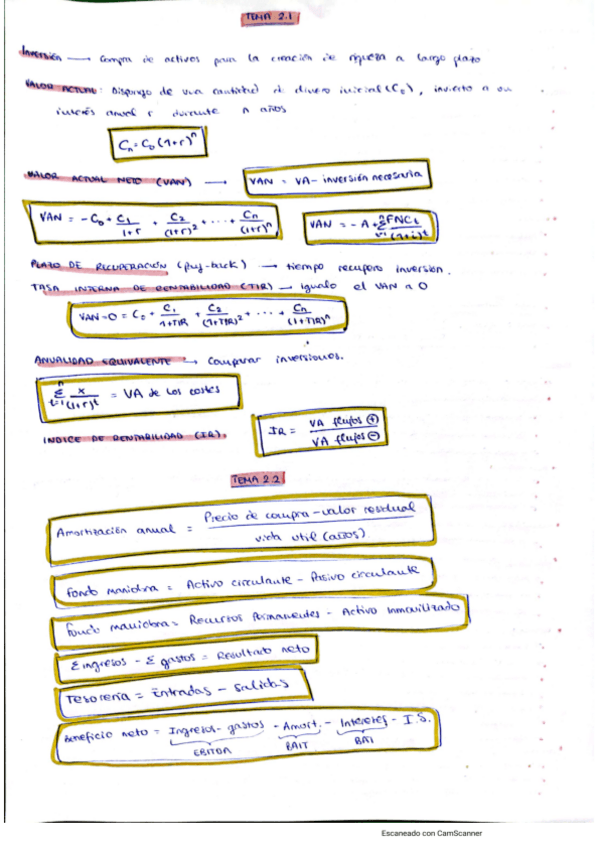 TEMA 2.1
Inversión → Compra de activos para la creación de riqueza a largo plazo
VALOR ACTUAL: Dispongo de una cantidad de dinero inicial (C₀), invierto a un
interés anual r durante n años
Cₙ = C₀ (1+r)ⁿ
VALOR ACTUAL NETO (VAN) → VAN = VA - inversión necesaria
VAN = -C₀ + C₁/(1+r) + C₂/(1+r)² + ... + Cₙ/(1+r)ⁿ VAN = -A + Σ t=1 FNCt/(1+i)^t
PLAZO DE RECUPERACIÓN (pay-back) → tiempo recupero inversión.
TASA INTERNA DE RENTABILIDAD (TIR) → igualo el VAN a 0
VAN=0 = C₀ + C₁/(1+TIR) + C₂/(1+TIR)² + ... + Cₙ/(1+TIR)ⁿ
ANUALIDAD EQUIVALENTE → Comparar inversiones.
n Σ t=1 x/(1+r)^t = VA de los costes
INDICE DE RENTABILIDAD (IR). IR = VA flujos ⊕ / VA flujos ⊖
TEMA 2.2
Amortización anual = Precio de compra - valor residual / vida util (años)
Fondo maniobra = Activo circulante - Pasivo circulante
Fondo maniobra = Recursos Permanentes - Activo Inmovilizado
Σ ingresos - Σ gastos = Resultado neto
Tesorería = Entradas - Salidas
Beneficio neto = Ingresos - gastos - Amort. - Intereses - I.S.
EBITDA BAIT BAI
Escaneado con CamScanner